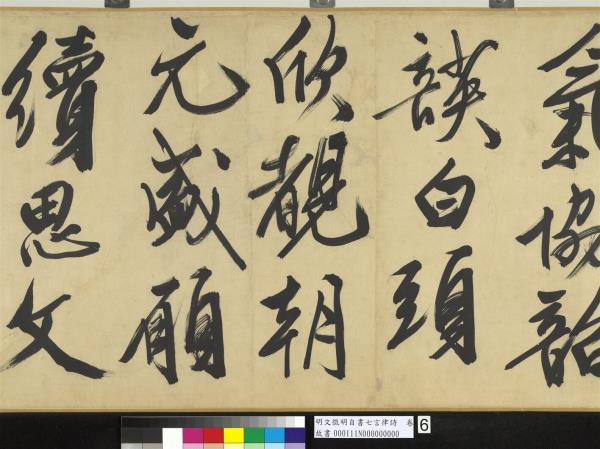 氣協韶
韺白頭
欣覩朝
元盛願
續思文
明文徵明自書七言律詩 卷
故書 000111N000000000
6